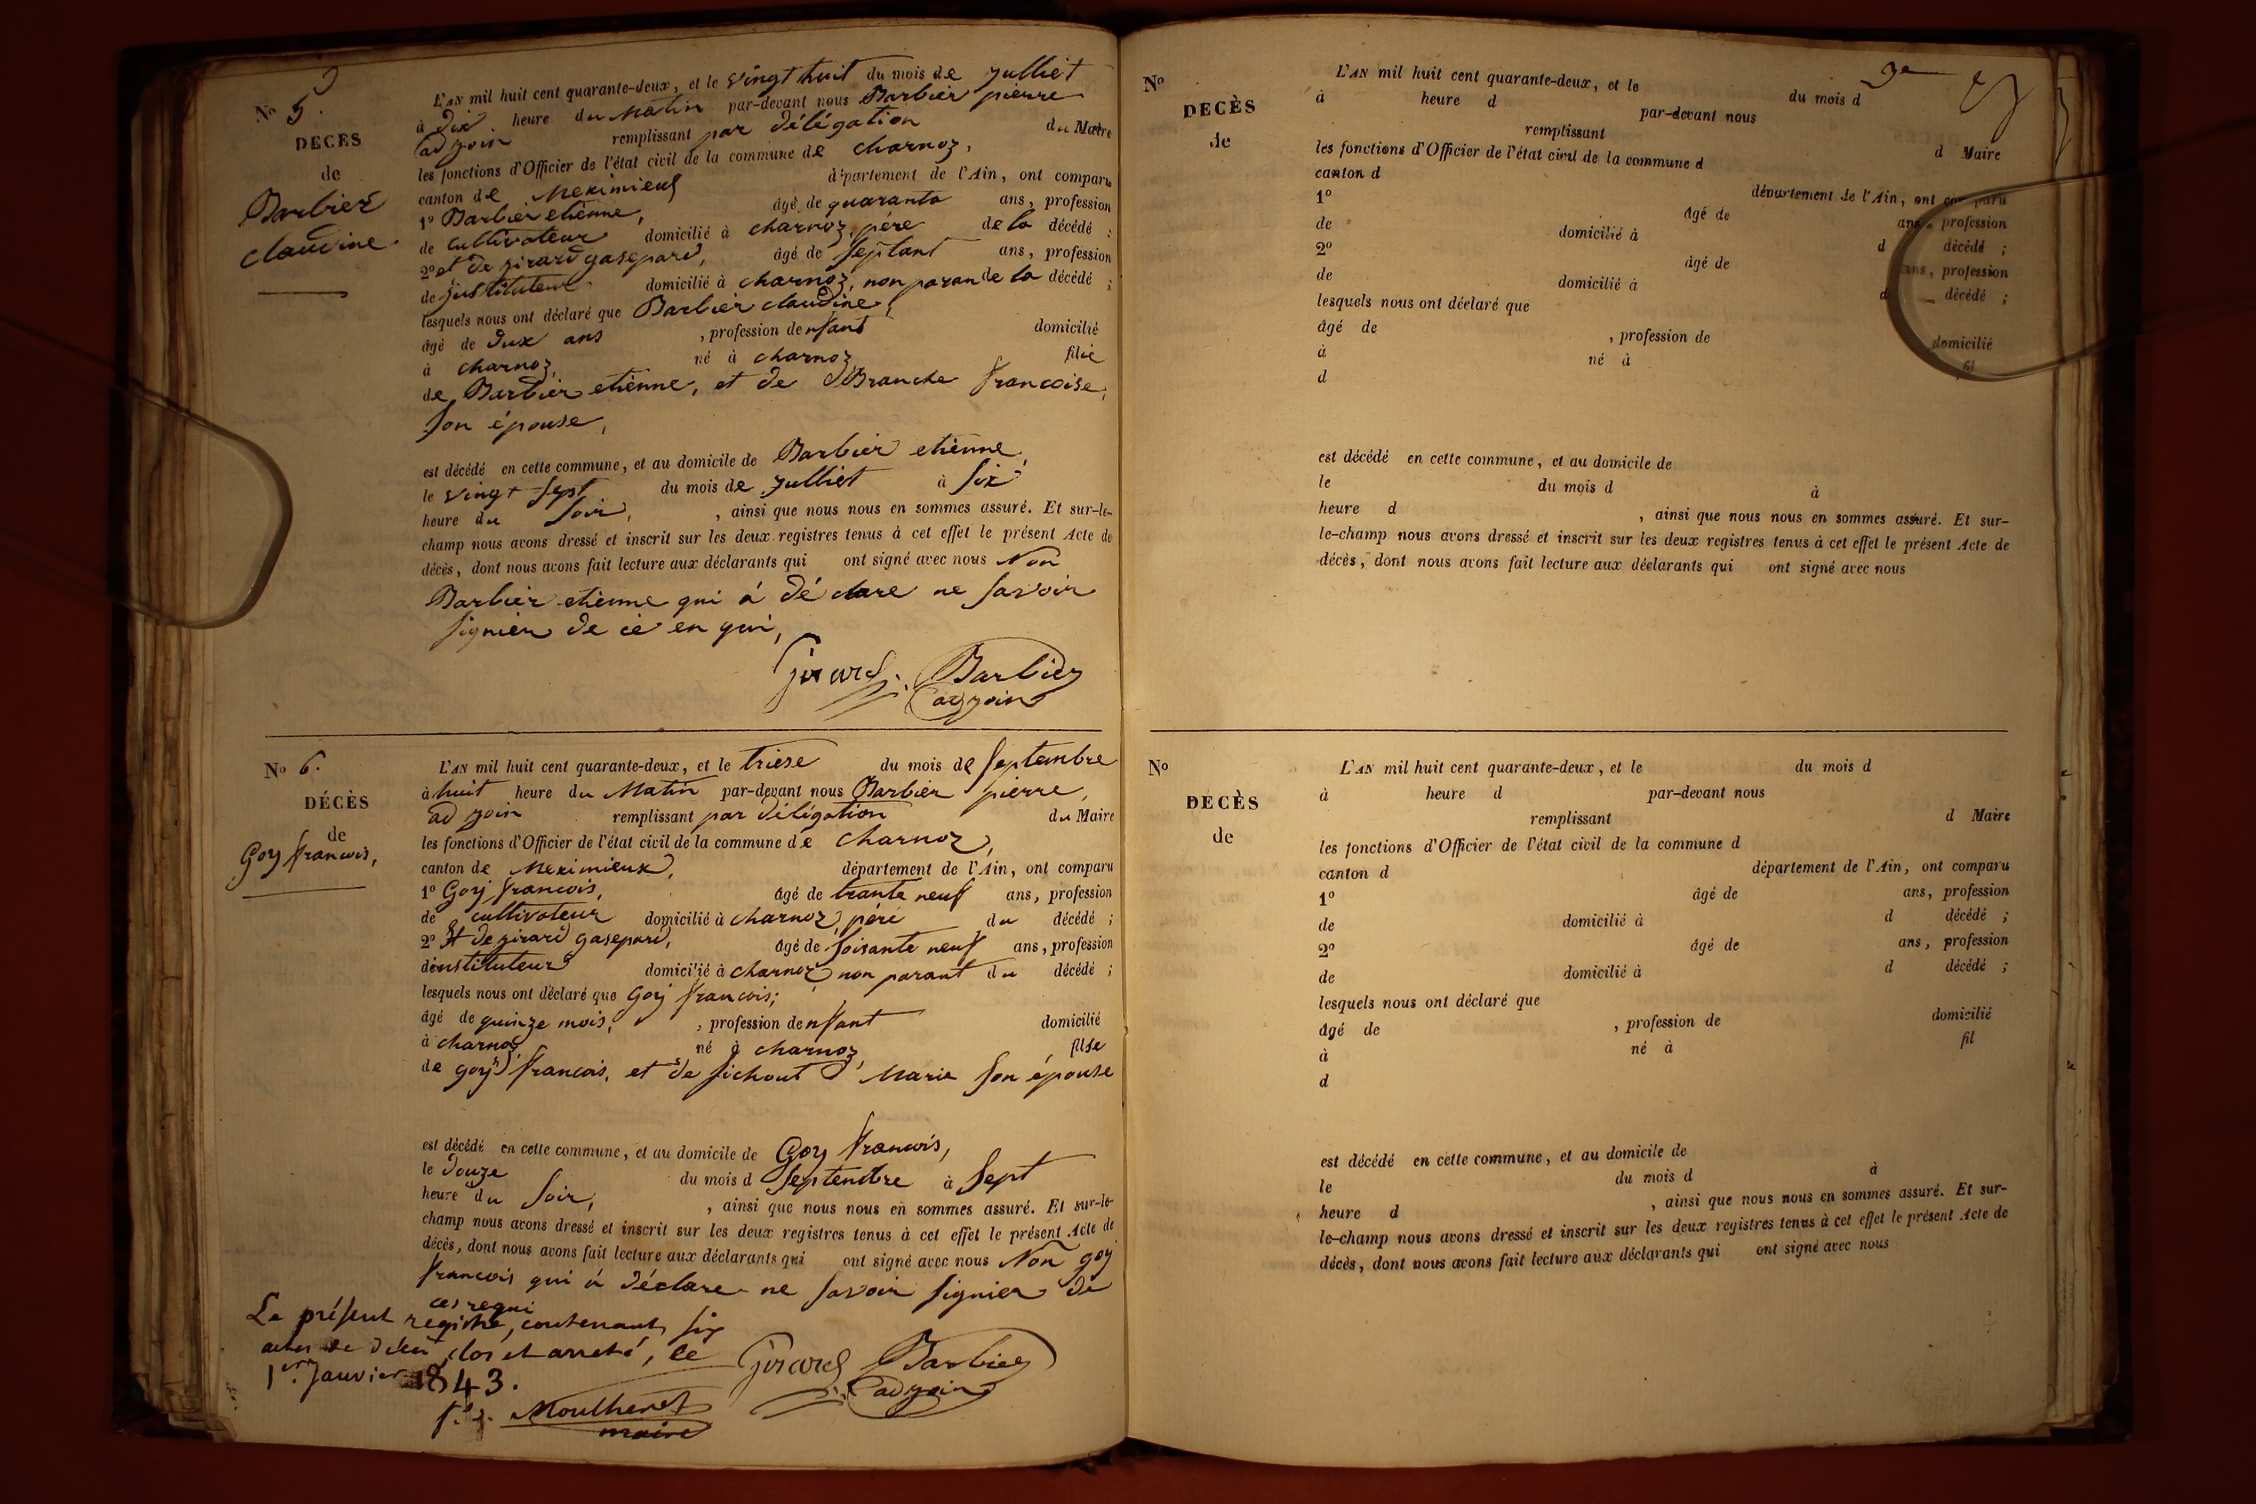 No 5.
DECES
de
Barbier
claudine
L'AN mil huit cent quarante-deux, et le vingt huit du mois de julliet
à dix heure du Matin par-devant nous Barbier pierre
adjoin remplissant par délégation du Maire
les fonctions d'Officier de l'état civil de la commune de charnoz,
canton de Meximieux département de l'Ain, ont comparu
1o Barbier etienne, âgé de quaranta ans, profession
de cultivateur domicilié à charnoz, pére de la décédé ;
2o et de girard gasepard, âgé de septant ans, profession
de justituteur domicilié à charnoz, non paran de la décédé ;
lesquels nous ont déclaré que Barbier claudine,
âgé de dux ans , profession denfant domicilié
à charnoz, né à charnoz filie
de Barbier etienne, et de Branche francoise,
son épouse,
est décédé en cette commune, et au domicile de Barbier etienne,
le vingt sept du mois de julliet à six
heure du soir, , ainsi que nous nous en sommes assuré. Et sur-le-
champ nous avons dressé et inscrit sur les deux registres tenus à cet effet le présent Acte de
décès, dont nous avons fait lecture aux déclarants qui ont signé avec nous Non
Barbier etienne qui á dé clare ne savoir
signier de ce en qui,
Girard. Barbier
adjoin
No 6.
DÉCÈS
de
Goy francois,
L'AN mil huit cent quarante-deux, et le trièse du mois de septembre
à huit heure du Matin par-devant nous Barbier pierre,
ad join remplissant par délégation du Maire
les fonctions d'Officier de l'état civil de la commune de charnoz,
canton de Meximieux, département de l'Ain, ont comparu
1o Goy francois, âgé de trante neuf ans, profession
de cultivateur domicilié à charnoz, pére du décédé ;
2o Et de girard gasepard, âgé de soisante neuf ans, profession
dinstituteur domicilié à charnoz non parant du décédé ;
lesquels nous ont déclaré que Goy francois;
âgé de quinze mois, , profession denfant domicilié
à charnoz né à charnoz, filse
de goy francois, et de sichout Marie son épouse
est décédé en cette commune, et au domicile de Goy francois,
le douze du mois d septembre à sept
heure du soir, , ainsi que nous nous en sommes assuré. Et sur-le-
champ nous avons dressé et inscrit sur les deux registres tenus à cet effet le présent Acte de
décès, dont nous avons fait lecture aux déclarants qui ont signé avec nous Non goy
francois qui á déclare ne savoir signier de
ces requi
Le présent registre, contenant six
actes de décès, clos et arreté, le
1er. Janvier 1843.
Girard Barbier
adjoin
Moutheret
maire
No
DECÈS
de
L'AN mil huit cent quarante-deux, et le du mois d
à heure d par-devant nous
remplissant d Maire
les fonctions d'Officier de l'état civil de la commune d
canton d département de l'Ain, ont comparu
1o âgé de ans, profession
de domicilié à d décédé ;
2o âgé de ans, profession
de domicilié à d décédé ;
lesquels nous ont déclaré que
âgé de , profession de domicilié
à né à fil
d
est décédé en cette commune, et au domicile de
le du mois d à
heure d , ainsi que nous nous en sommes assuré. Et sur-
le-champ nous avons dressé et inscrit sur les deux registres tenus à cet effet le présent Acte de
décès, dont nous avons fait lecture aux déclarants qui ont signé avec nous
No
DECÈS
de
L'AN mil huit cent quarante-deux, et le du mois d
à heure d par-devant nous
remplissant d Maire
les fonctions d'Officier de l'état civil de la commune d
canton d département de l'Ain, ont comparu
1o âgé de ans, profession
de domicilié à d décédé ;
2o âgé de ans, profession
de domicilié à d décédé ;
lesquels nous ont déclaré que
âgé de , profession de domicilié
à né à fil
d
est décédé en cette commune, et au domicile de
le du mois d à
heure d , ainsi que nous nous en sommes assuré. Et sur-
le-champ nous avons dressé et inscrit sur les deux registres tenus à cet effet le présent Acte de
décès, dont nous avons fait lecture aux déclarants qui ont signé avec nous